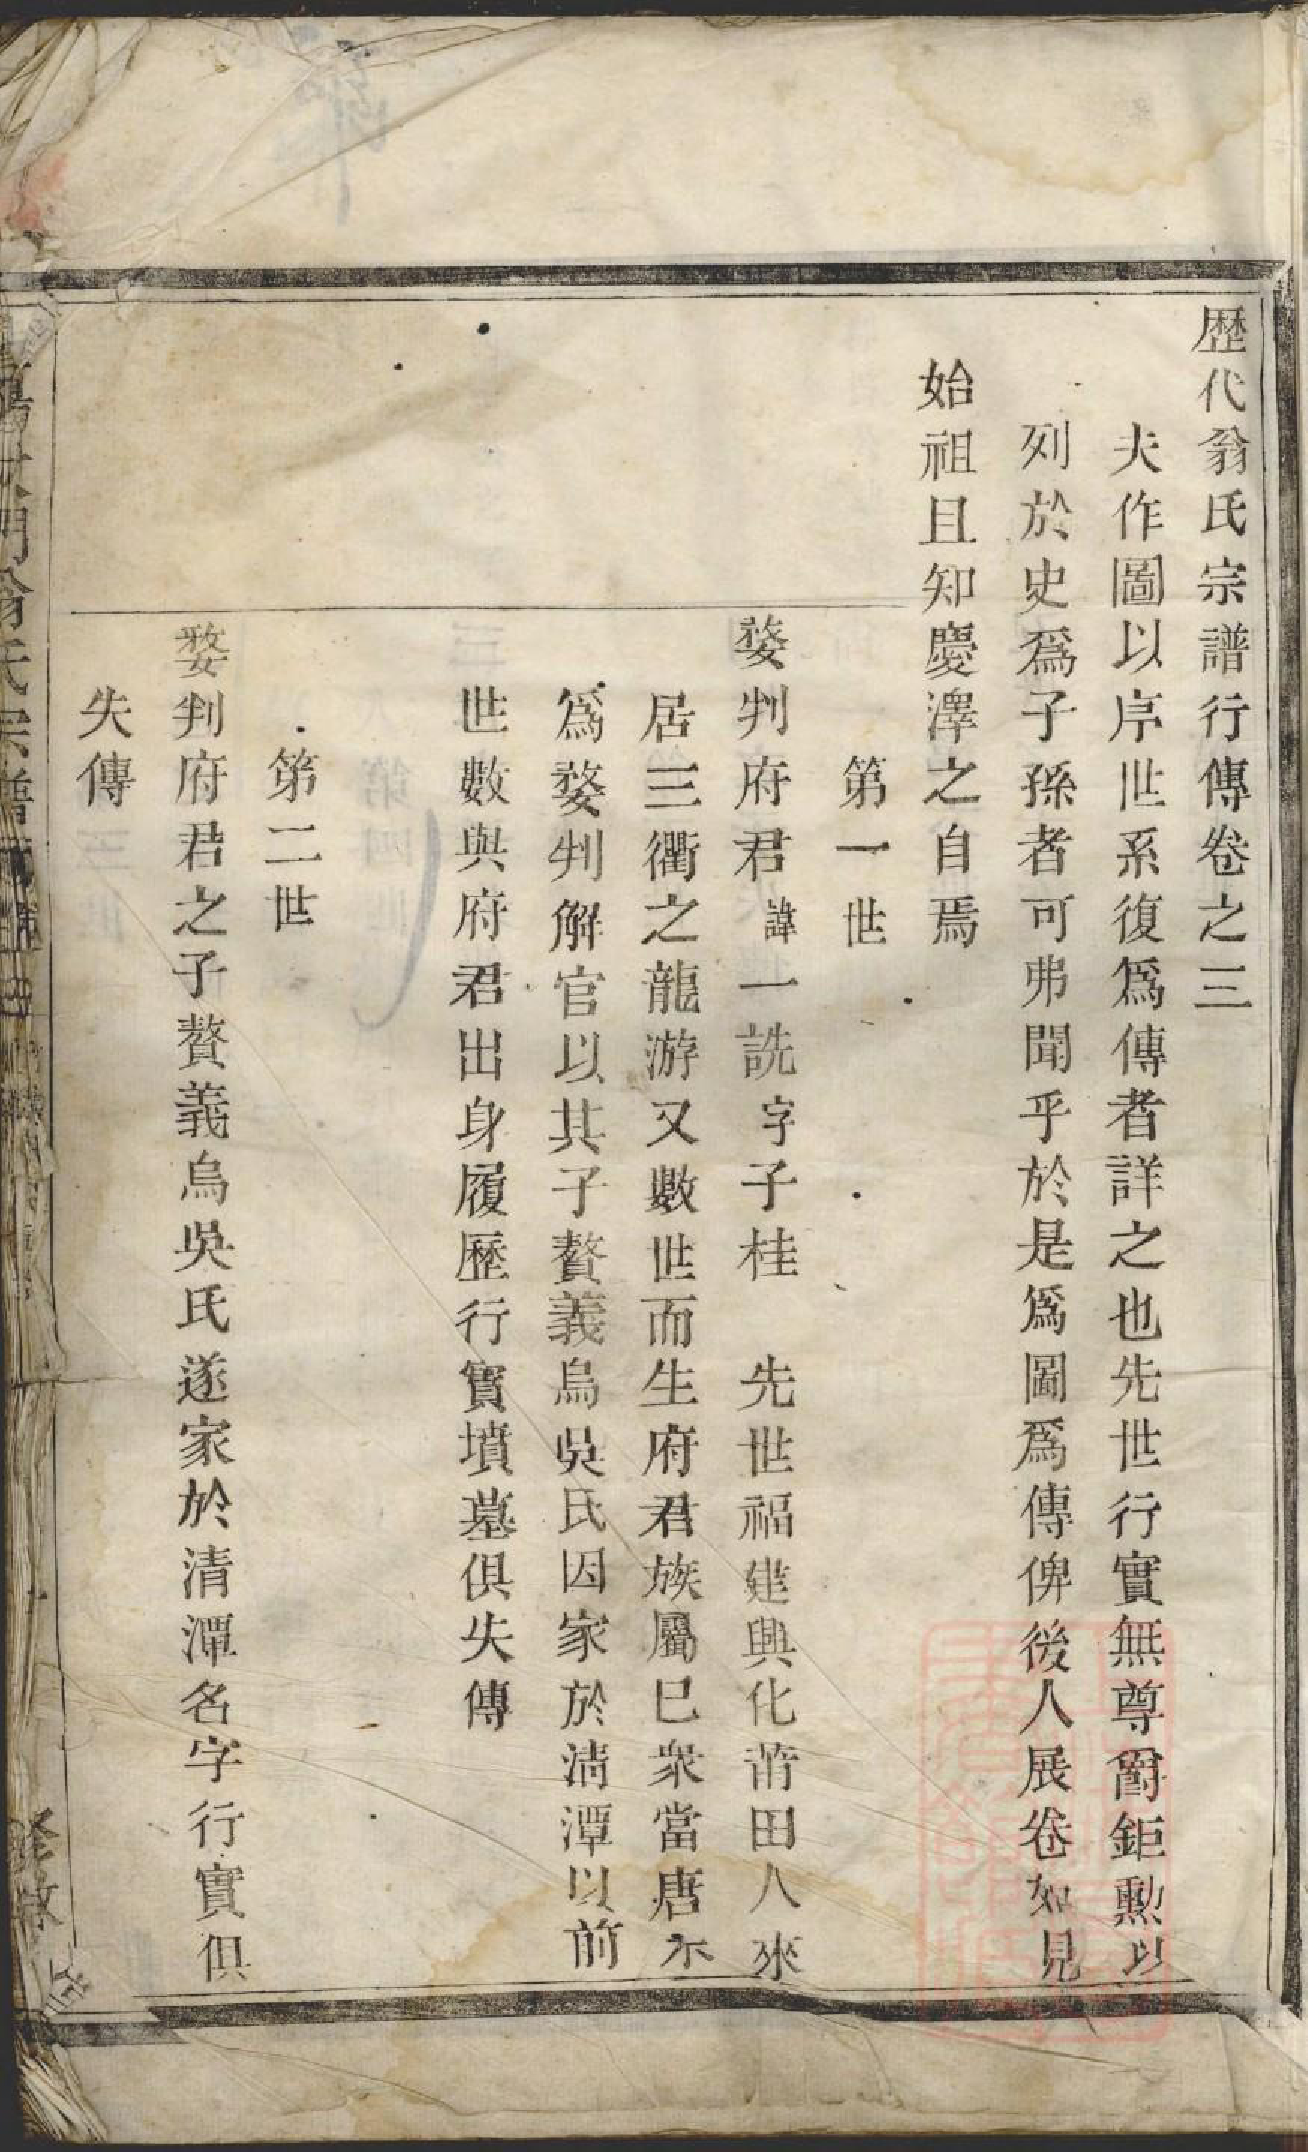 歴代翁氏宗譜行傳卷之三
夫作圖以序世系復爲傳者詳之也先世行實無尊爵鉅勲以
列於史爲子孫者可弗聞乎於是爲圖爲傳俾後人展卷如見
始祖且知慶澤之自焉
第一世
婺判府君諱一詵字子桂　先世福建興化莆田人來
居三衢之龍游又數世而生府君族屬已衆當唐末
爲婺判解官以其子贅義烏吳氏因家於清潭以前
世數與府君出身履歷行實墳墓俱失傳
第二世
婺判府君之子贅義烏吳氏遂家於清潭名字行實俱
失傳